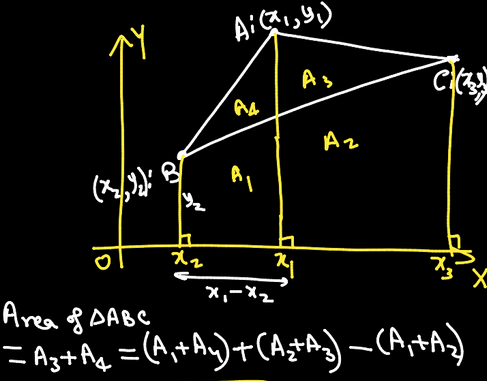 Y
A: (x₁, y₁)
A₃
A₄
C: (x₃, y₃)
A₂
B
(x₂, y₂):
A₁
y₂
O
x₂
x₁
x₃
X
x₁ - x₂
Area of △ABC
= A₃ + A₄ = (A₁ + A₄) + (A₂ + A₃) - (A₁ + A₂)